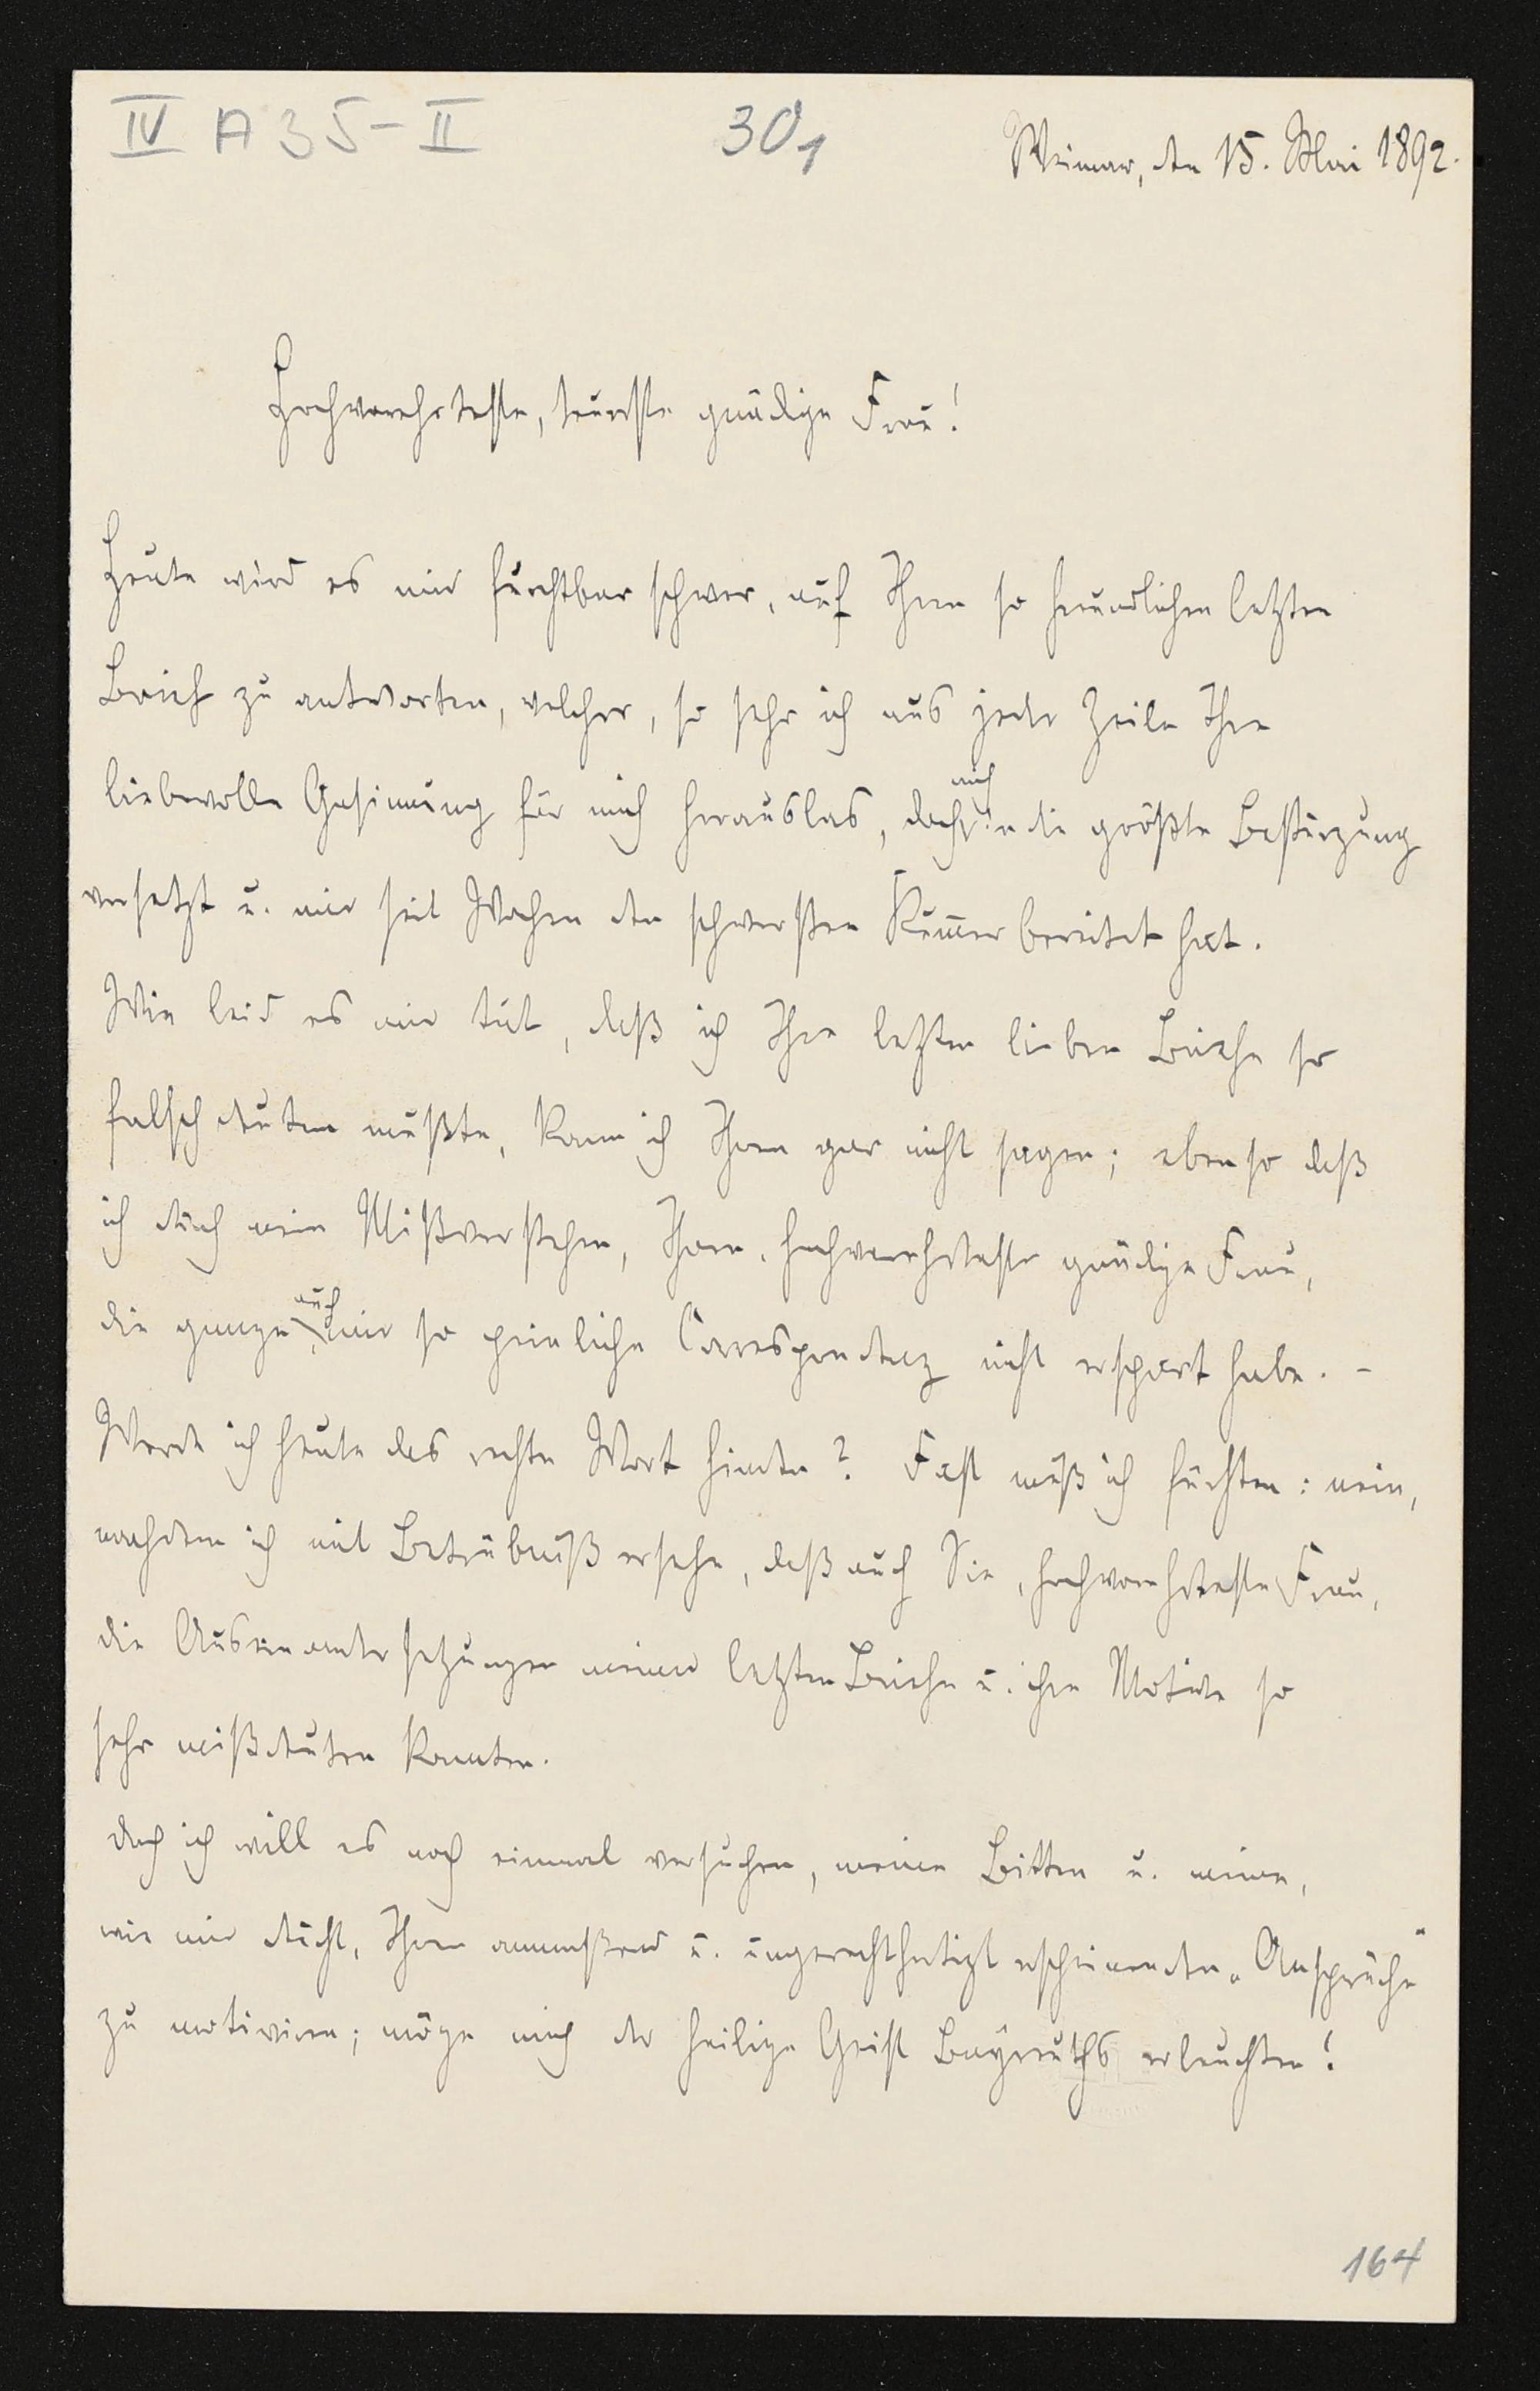 IV A 35-II
301
Weimar, den 15. Mai 1892.
Hochverehrteste, teuerste gnädige Frau!
Heute wird es mir furchtbar schwer, auf Ihren so freundlichen letzten
Brief zu antworten, welcher, so sehr ich aus jeder Zeile Ihre
liebevolle Gesinnung für mich herauslas, doch mich in die größte Bestürzung
versetzt u. mir seit Wochen den schwersten Kummer bereitet hat.
Wie leid es mir tut, daß ich Ihre letzten lieben Briefe so
falsch deuten mußte, kann ich Ihnen gar nicht sagen; ebenso daß
ich durch mein Mißverstehen, Ihnen, hochverehrteste gnädige Frau,
die ganze, auch mir so peinliche Correspondenz nicht erspart habe. –
Werde ich heute das rechte Wort finden? Fast muß ich fürchten: nein,
nachdem ich mit Betrübniß ersehe, daß auch Sie, hochverehrteste Frau,
die Auseinandersetzungen meiner letzten Briefe u. ihre Motive so
sehr mißdeuten konnten.
Doch ich will es noch einmal versuchen, meine Bitten u. meine,
wie mir deucht, Ihnen anmaßend u. ungerechtfertigt erscheinenden „Ansprüche“
zu motiviren; möge mich der heilige Geist Bayreuths erleuchten!
164